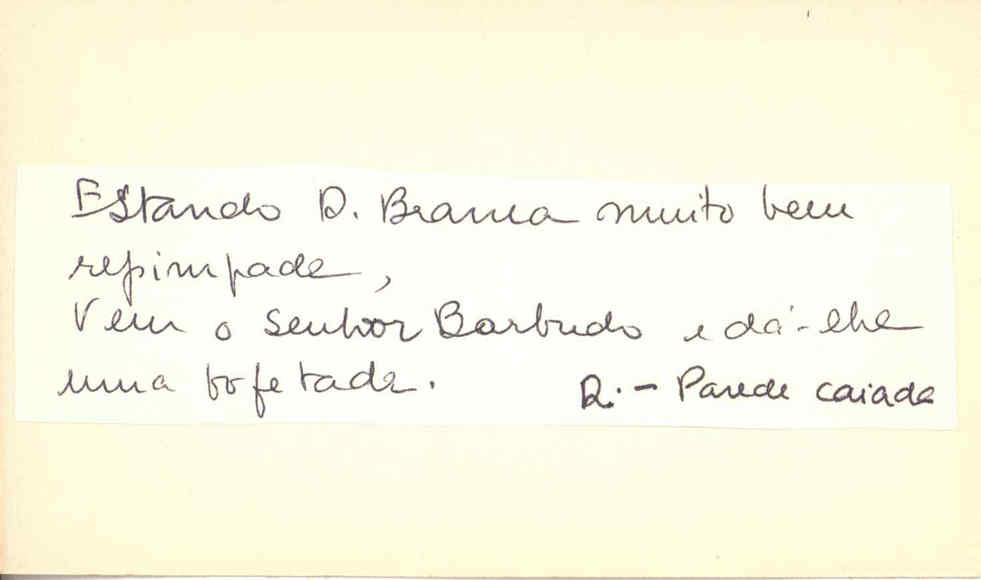 Estando D. Branca muito bem
repimpada,
Vem o senhor Barbudo e dá-lhe
uma bofetada.
R. - Parede caiada